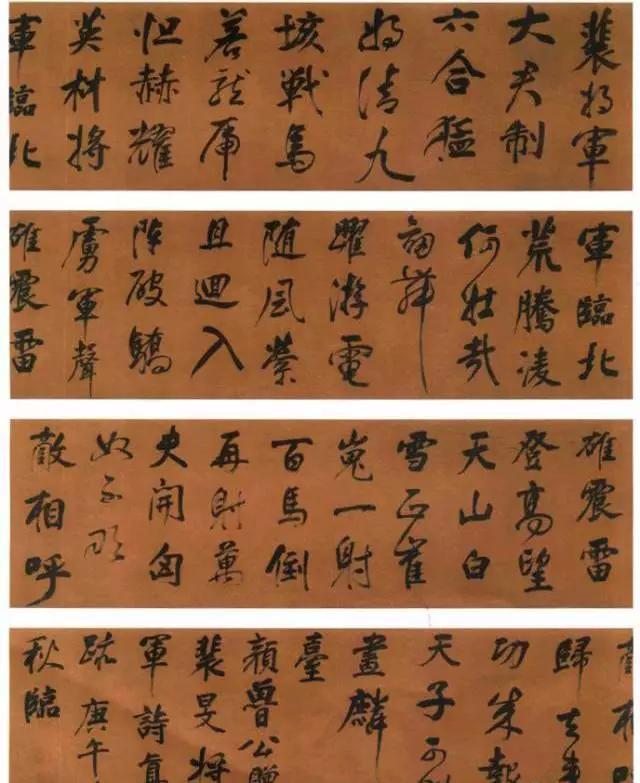 裴将軍
大君制
六合猛
将清九
垓戰馬
若龍虎
怛赫耀
英材将
軍臨北
軍臨北
荒騰凌
何壮哉
劒舞
躍游電
随風縈
且迴入
陣破驕
虜軍聲
雄震雷
雄震雷
登高望
天山白
雪正崔
嵬一射
百馬倒
再射萬
夫開匈
奴不敢
敵相呼
敵相
歸去
功成報
天子可
畫麟
臺
顏魯公贈
裴旻将
軍詩真
跡庚午
秋臨